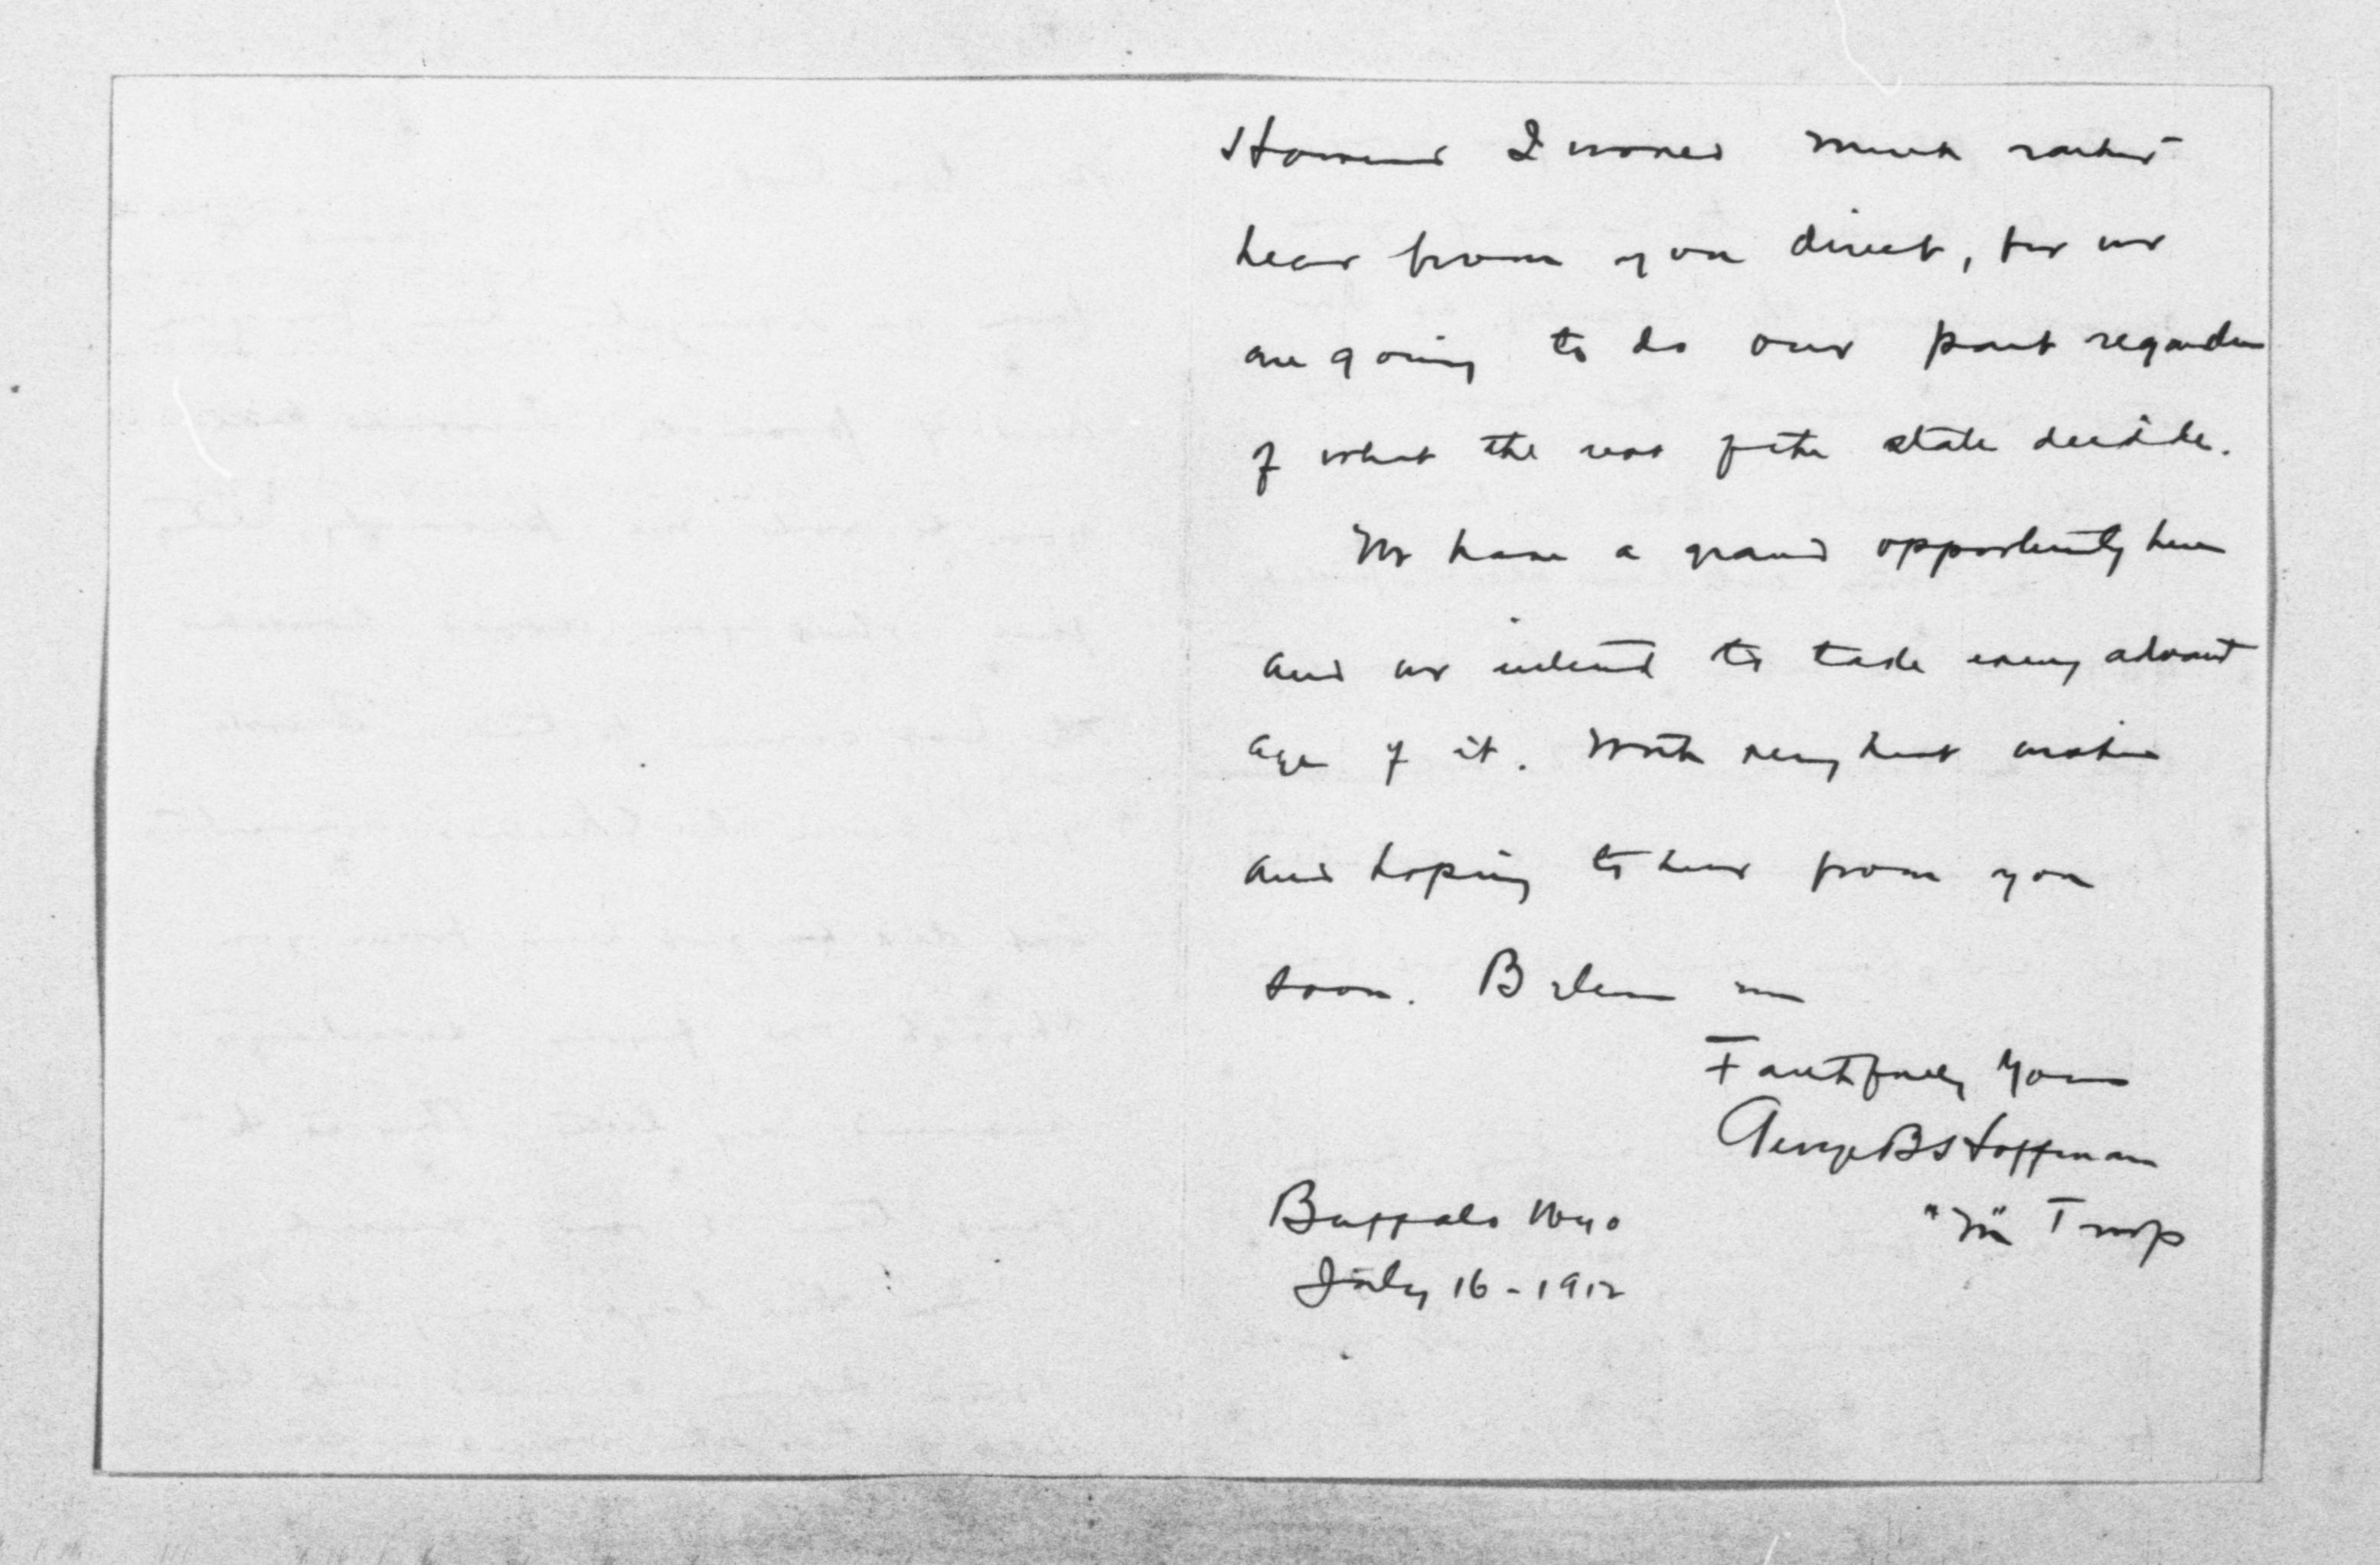 However I would much rather
hear from you direct, for we
are going to do our part regardless
of what the rest of the state decides.
We have a grand opportunity here
and we intend to take every advant
age of it. With very best wishes
and hoping to hear from you
soon. Believe me
Faithfully Yours
George B Hoffman
"M" Troop
Buffalo Wyo
July 16 - 1912